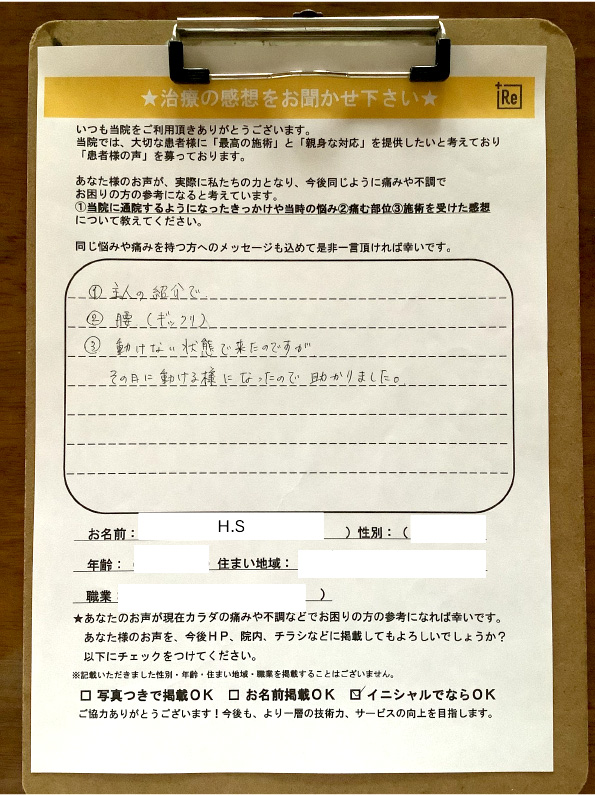 ★治療の感想をお聞かせ下さい★
Re
いつも当院をご利用頂きありがとうございます。
当院では、大切な患者様に「最高の施術」と「親身な対応」を提供したいと考えており
「患者様の声」を募っております。
あなた様のお声が、実際に私たちの力となり、今後同じように痛みや不調で
お困りの方の参考になると考えています。
①当院に通院するようになったきっかけや当時の悩み②痛む部位③施術を受けた感想
について教えてください。
同じ悩みや痛みを持つ方へのメッセージも込めて是非一言頂ければ幸いです。
① 主人の紹介で
② 腰（ギックリ）
③ 動けない状態で来たのですが
その日に動ける様になったので助かりました。
お名前： H.S ）性別：（
年齢：（ ）住まい地域：
職業： ）
★あなたのお声が現在カラダの痛みや不調などでお困りの方の参考になれば幸いです。
あなた様のお声を、今後HP、院内、チラシなどに掲載してもよろしいでしょうか？
以下にチェックをつけてください。
※記載いただきました性別・年齢・住まい地域・職業を掲載することはございません。
□ 写真つきで掲載OK □ お名前掲載OK ☑ イニシャルでならOK
ご協力ありがとうございます！今後も、より一層の技術力、サービスの向上を目指します。